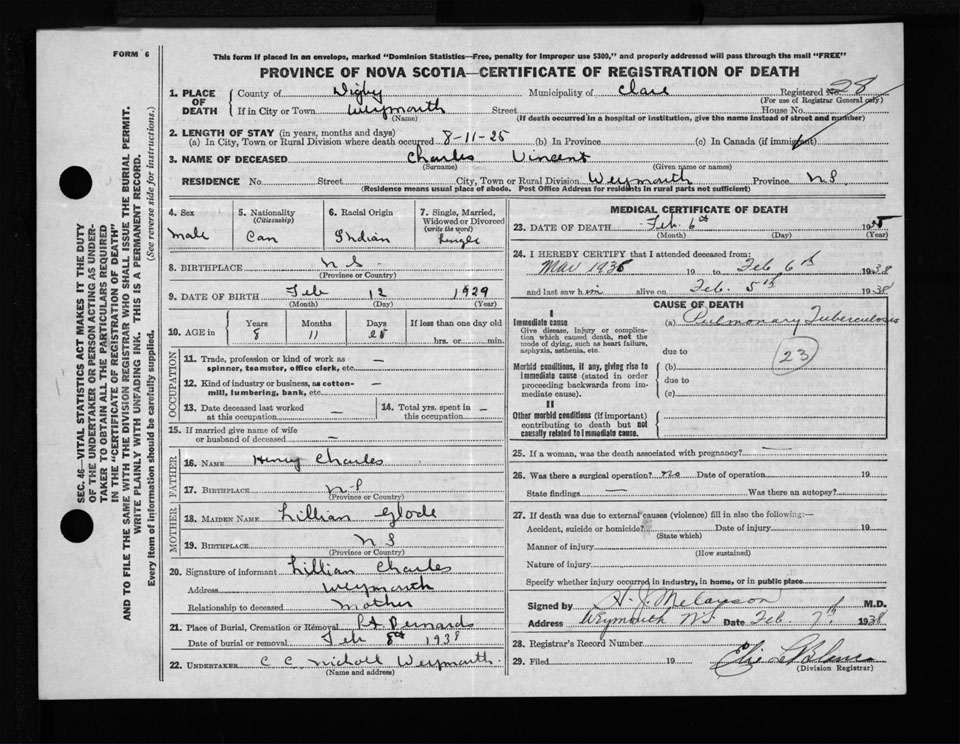 FORM 6
This form if placed in an envelope, marked "Dominion Statistics—Free, penalty for improper use $300," and properly addressed will pass through the mail "FREE"
PROVINCE OF NOVA SCOTIA—CERTIFICATE OF REGISTRATION OF DEATH
SEC. 46—VITAL STATISTICS ACT MAKES IT THE DUTY
OF THE UNDERTAKER OR PERSON ACTING AS UNDER-
TAKER TO OBTAIN ALL THE PARTICULARS REQUIRED
IN THE "CERTIFICATE OF REGISTRATION OF DEATH"
AND TO FILE THE SAME WITH THE DIVISION REGISTRAR WHO SHALL ISSUE THE BURIAL PERMIT.
WRITE PLAINLY WITH UNFADING INK. THIS IS A PERMANENT RECORD.
Every item of information should be carefully supplied. (See reverse side for instructions.)
1. PLACE OF DEATH
County of Digby Municipality of Clare Registered No. 28
(For use of Registrar General only)
If in City or Town Weymouth Street House No.
(Name) (If death occurred in a hospital or institution, give the name instead of street and number)
2. LENGTH OF STAY (in years, months and days)
(a) In City, Town or Rural Division where death occurred 8-11-25 (b) In Province (c) In Canada (if immigrant)
3. NAME OF DECEASED Charles Vincent
(Surname) (Given name or names)
RESIDENCE No. Street City, Town or Rural Division Weymouth Province N.S.
(Residence means usual place of abode. Post Office Address for residents in rural parts not sufficient)
4. Sex male
5. Nationality (Citizenship) Can
6. Racial Origin Indian
7. Single, Married, Widowed or Divorced (write the word) Single
8. BIRTHPLACE N S
(Province or Country)
9. DATE OF BIRTH Feb 12 1929
(Month) (Day) (Year)
10. AGE in Years 8 Months 11 Days 25 If less than one day old hrs. or min.
OCCUPATION
11. Trade, profession or kind of work as spinner, teamster, office clerk, etc. —
12. Kind of industry or business, as cotton-mill, lumbering, bank, etc. —
13. Date deceased last worked at this occupation —
14. Total yrs. spent in this occupation —
15. If married give name of wife or husband of deceased —
FATHER
16. NAME Henry Charles
17. BIRTHPLACE N-S
(Province or Country)
MOTHER
18. MAIDEN NAME Lillian Glode
19. BIRTHPLACE N S
(Province or Country)
20. Signature of informant Lillian Charles
Address Weymouth
Relationship to deceased Mother
21. Place of Burial, Cremation or Removal St Bernards
Date of burial or removal Feb 8th 1938
22. UNDERTAKER C C Nicholl Weymouth
(Name and address)
MEDICAL CERTIFICATE OF DEATH
23. DATE OF DEATH Feb. 6th 19
(Month) (Day) (Year)
24. I HEREBY CERTIFY that I attended deceased from:
Mar 1936 19 to Feb 6th 1938
and last saw him alive on Feb. 5th 1938
CAUSE OF DEATH
I
Immediate cause
Give disease, injury or complication which caused death, not the mode of dying, such as heart failure, asphyxia, asthenia, etc.
(a) Pulmonary Tuberculosis
23
due to
Morbid conditions, if any, giving rise to immediate cause (stated in order proceeding backwards from immediate cause).
(b)
due to
(c)
II
Other morbid conditions (if important) contributing to death but not causally related to immediate cause.
25. If a woman, was the death associated with pregnancy? —
26. Was there a surgical operation? no Date of operation 19
State findings — Was there an autopsy?
27. If death was due to external causes (violence) fill in also the following:—
Accident, suicide or homicide? Date of injury 19
(State which)
Manner of injury
(How sustained)
Nature of injury
Specify whether injury occurred in industry, in home, or in public place
Signed by H. J. Melanson M.D.
Address Weymouth N.S. Date Feb. 7th 1938
28. Registrar's Record Number
29. Filed 19 Elie LeBlanc
(Division Registrar)